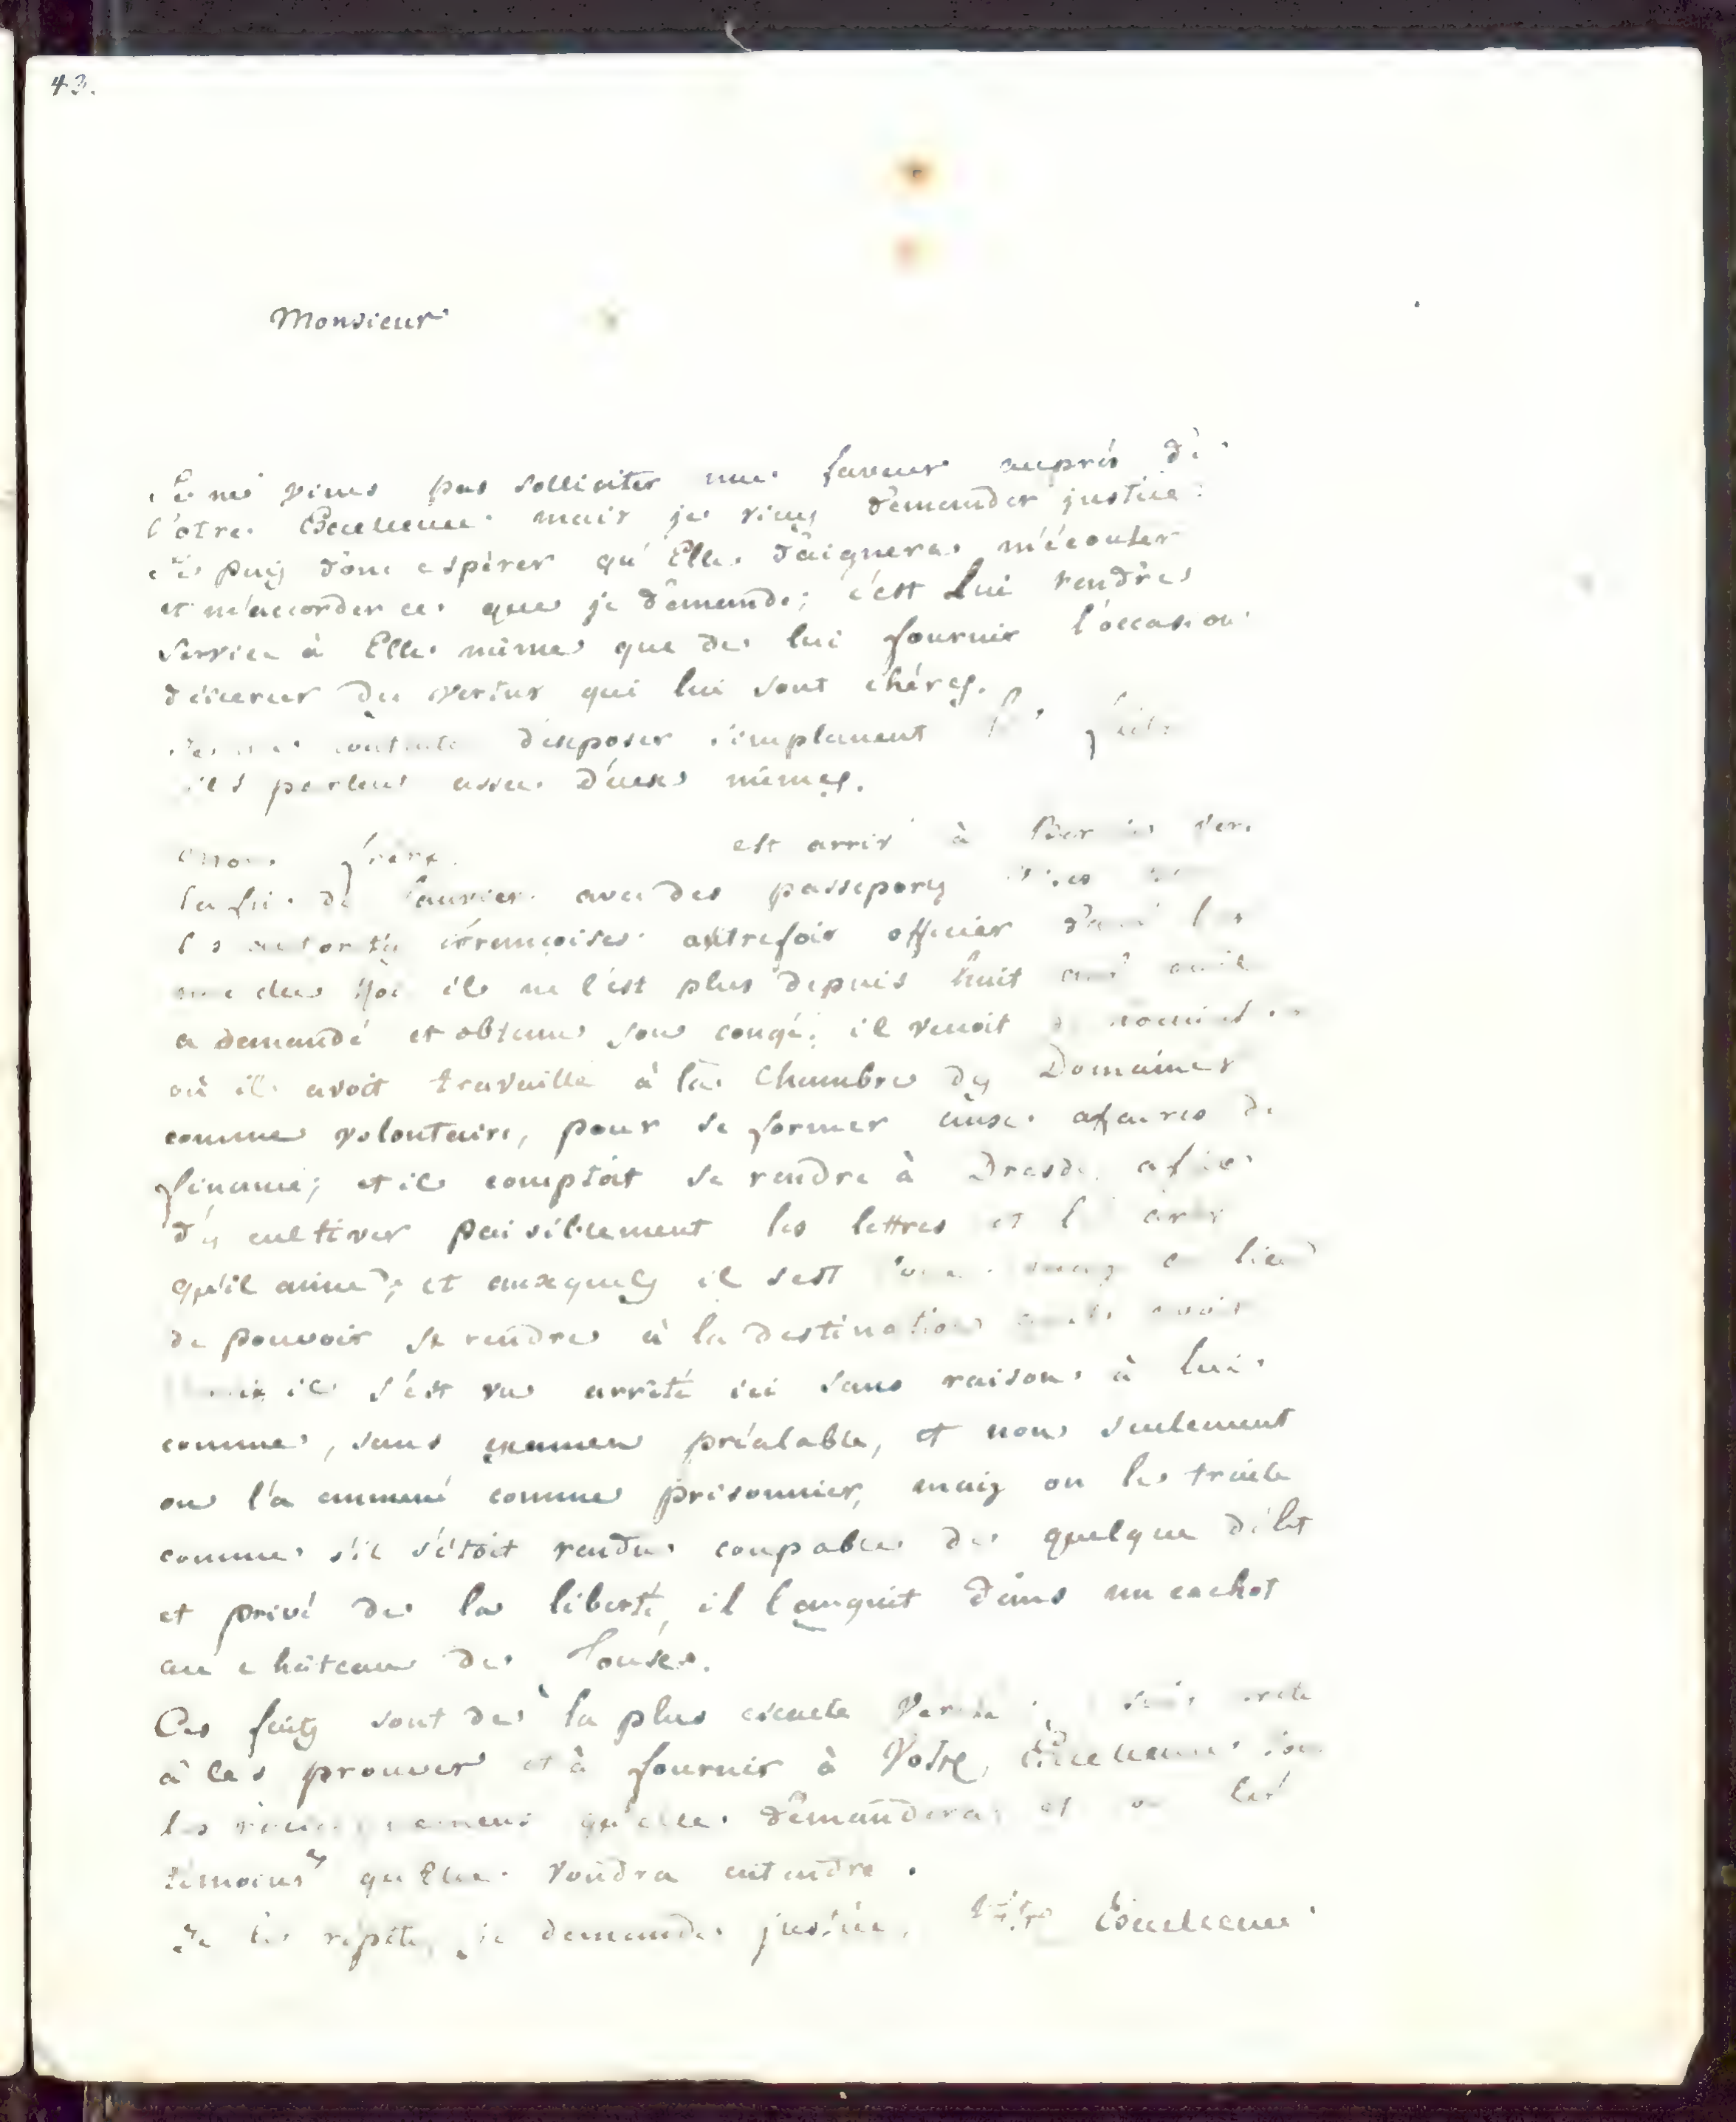 43.
Monsieur
Je ne viens pas solliciter une faveur auprès de
Votre Excellence mais je viens demander justice
Je puis donc espérer qu'Elle daignera m'écouter
et m'accorder ce que je demande; c'est Lui rendre
service à Elle même que de lui fournir l'occasion
d'éxercer des vertus qui lui sont chéres.
Je me contente d'exposer simplement faits
ils parlent assez d'eux mêmes.
Mon frere est arrivé à Berlin vers
la fin de Janvier avec des passeports
les autorités françoises autrefois officier dans les
du Roi il ne l'est plus depuis huit ans qu'il
a demandé et obtenu son congé; il venoit
où il avoit travaillé à la Chambre des Domaines
comme volontaire, pour se former aux affaires de
finance; et il comptoit se rendre à Dresde afin
d'y cultiver paisiblement les lettres et les arts
qu'il aime; et auxquels il s'est au lieu
de pouvoir se rendre à la destination avoit
il s'est vu arrêté ici sans raison à lui
connue, sans examen préalable, et non seulement
on l'a emmené comme prisonnier, mais on le traite
comme s'il s'étoit rendu coupable de quelque délit
et privé de la liberté, il languit dans un cachot
au château de Joux.
Ces faits sont de la plus exacte verité suis prete
à les prouver et à fournir à Votre Excellence
les qu'elle demandera et les
témoins qu'Elle voudra entendre.
Je le répète, je demande justice, Votre Excellence